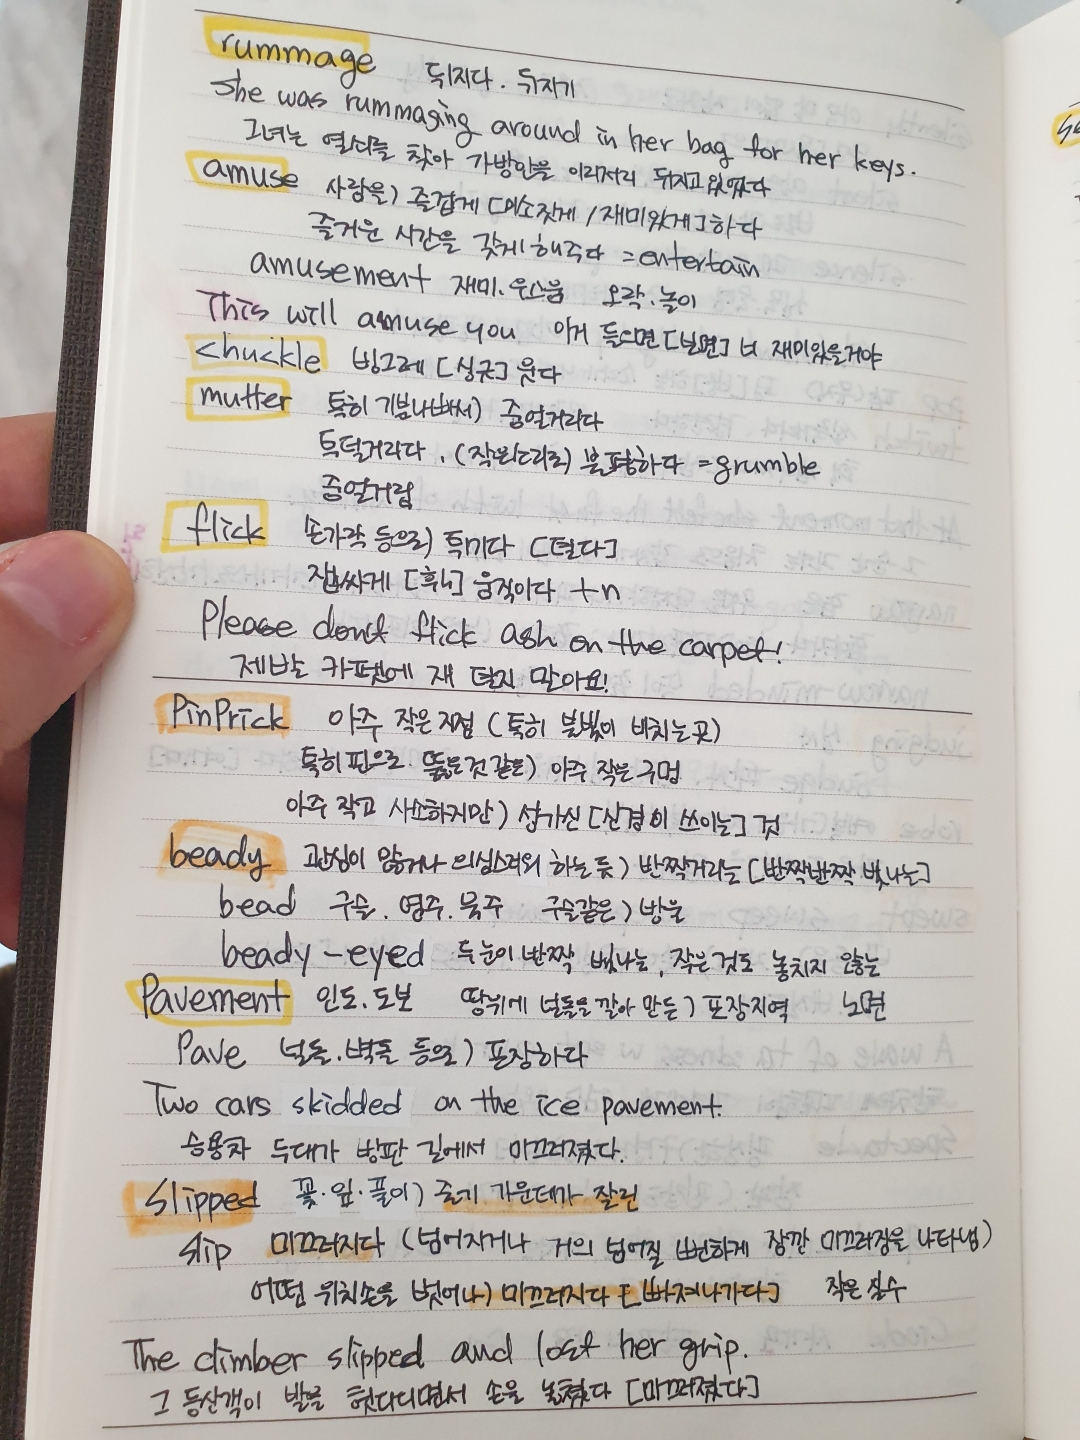 rummage 뒤지다. 뒤지기
She was rummaging around in her bag for her keys.
그녀는 열쇠를 찾아 가방안을 이리저리 뒤지고 있었다
amuse 사람을) 즐겁게 [미소짓게 / 재미있게] 하다
즐거운 시간을 갖게 해주다 = entertain
amusement 재미. 웃음 오락. 놀이
This will amuse you 이거 들으면 [보면] 너 재미있을거야
chuckle 빙그레 [싱긋] 웃다
mutter 특히 기분나빠서) 중얼거리다
투덜거리다. (작은소리로) 불평하다 = grumble
중얼거림
flick 손가락 등으로) 튀기다 [털다]
잽싸게 [휙] 움직이다 +n
Please dont flick ash on the carpet!
제발 카펫에 재 털지 말아요!
PinPrick 아주 작은 지점 (특히 불빛이 비치는 곳)
특히 핀으로 뚫은것 같은) 아주 작은 구멍
아주 작고 사소하지만) 성가신 [신경이 쓰이는] 것
beady 관심이 많거나 의심스러워 하는 듯) 반짝거리는 [반짝반짝 빛나는]
bead 구슬. 염주. 묵주 구슬같은) 방울
beady-eyed 두 눈이 반짝 빛나는, 작은 것도 놓치지 않는
Pavement 인도. 도보 땅위에 널돌을 깔아 만든) 포장지역 노면
Pave 널돌. 벽돌 등으로) 포장하다
Two cars skidded on the ice pavement.
승용차 두대가 빙판 길에서 미끄러졌다.
Slipped 꽃. 잎. 풀이) 줄기 가운데가 잘린
slip 미끄러지다 (넘어지거나 거의 넘어질 뻔하게 잠깐 미끄러짐을 나타냄)
어떤 위치 손을 벗어나) 미끄러지다 [빠져나가다] 작은 실수
The climber slipped and lost her grip.
그 등산객이 발을 헛디디면서 손을 놓쳤다 [미끄러졌다]